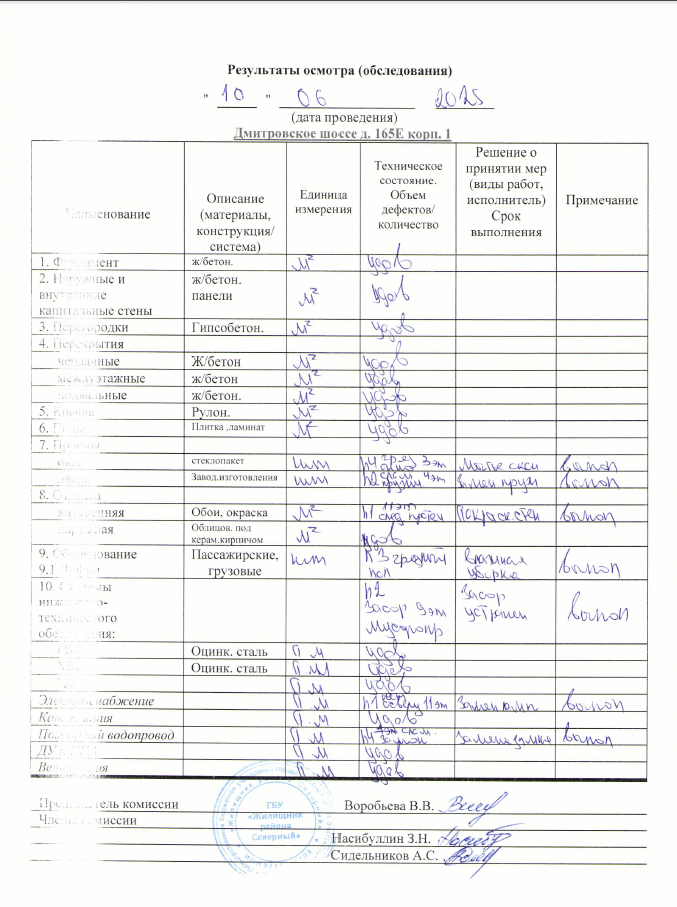 Результаты осмотра (обследования)
" 10 " 06 2025
(дата проведения)
Дмитровское шоссе д. 165Е корп. 1
Наименование Описание (материалы, конструкция/ система) Единица измерения Техническое состояние. Объем дефектов/ количество Решение о принятии мер (виды работ, исполнитель) Срок выполнения Примечание
1. Фундамент ж/бетон. м² удов
2. Наружные и внутренние капитальные стены ж/бетон. панели м² удов
3. Перегородки Гипсобетон. м² удов
4. Перекрытия
чердачные Ж/бетон м² удов
междуэтажные ж/бетон м² удов
подвальные ж/бетон. м² удов
5. Крыша Рулон. м² удов
6. Полы Плитка ,ламинат м² удов
7. Проемы
окна стеклопакет шт п4 3 эт выпол
двери Завод.изготовления шт п2 4 эт выпол
8. Отделка
внутренняя Обои, окраска м² п1 11 эт Покраск стен выпол
наружная Облицов. под керам.кирпичом м² удов
9. Оборудование Пассажирские, грузовые шт п3 влажная уборка выпол
9.1
10. Системы инженерно-технического оборудования: п2 Засор 9 эт мусоропр Засор устранен выпол
Оцинк. сталь П м удов
Оцинк. сталь П м удов
П м удов
Электроснабжение П м п1 11 эт Замен ламп выпол
Канализация П.м удов
Пожарный водопровод П м п4 замена замка выпол
П м удов
Вентиляция П.м удов
Председатель комиссии Воробьева В.В.
Члены комиссии
Насибуллин З.Н.
Сидельников А.С.
ГБУ
«Жилищник
района
Северный»